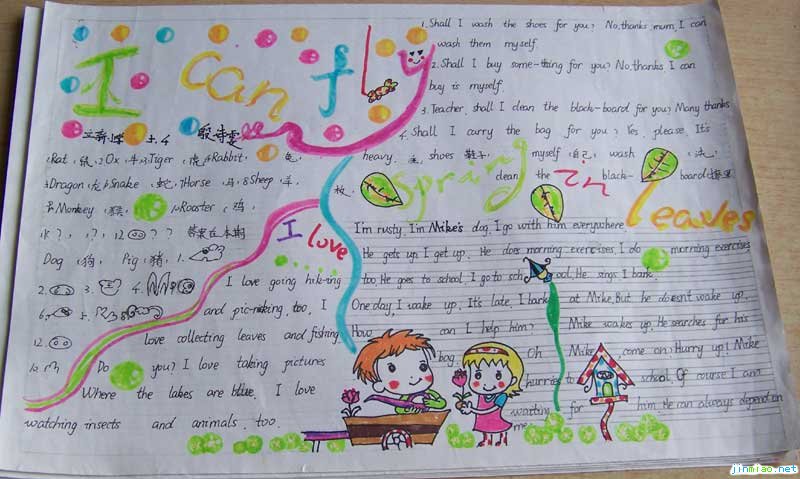 I can fl
1.Shall I wash the shoes for you? No,thanks mum,I can
wash them myself.
2.Shall I buy some-thing for you? No,thanks I can
buy is myself.
3.Teacher, shall I clean the black-board for you? Many thanks
4.Shall I carry the bag for you? Yes, please. It's
heavy. shoes 鞋子, myself (自己), wash (洗)
clean the black- board
sprang in leaves
Rat, 鼠, 2Ox, 牛 Tiger, 虎 Rabbit, 兔,
Dragon, 龙 Snake (蛇) 7Horse, 马, 8Sheep, 羊,
Monkey (猴) Roaster (鸡,
Dog (狗, Pig, 猪, 1.
2. 3. 4.
I love
I love going hik-ing
and pic-niking, too, I
12. love collecting leaves and fishing.
Do you? I love taking pictures
Where the lakes are blue. I love
watching insects and animals, too.
I'm rusty, I'm Mike's dog, I go with him everywhere
He gets up, I get up. He does morning exercises, I do morning exercises
too, He goes to school, I go to school, He sings I bark.
One day, I wake up. It's late, I bark at Mike, But he doesn't wake up.
How can I help him? Mike wakes up, He searches for his
bag. Oh Mike, come on! Hurry up! Mike
hurries to school. Of course I am
waiting for him. He can always depend on
me.
jinmiao.net